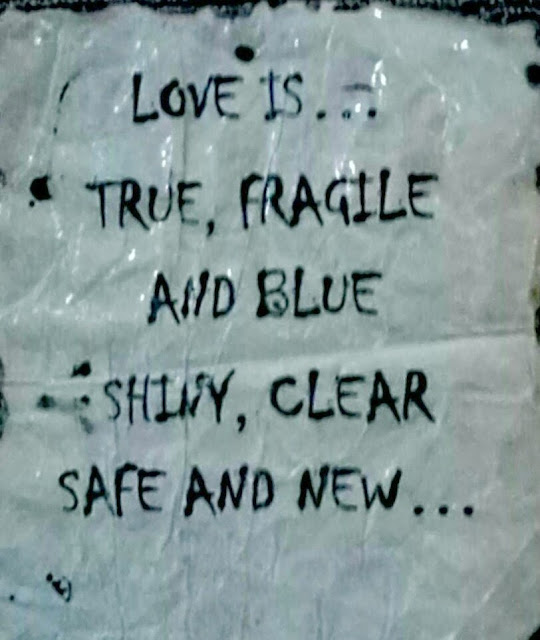 LOVE IS...
TRUE, FRAGILE
AND BLUE
SHINY, CLEAR
SAFE AND NEW...